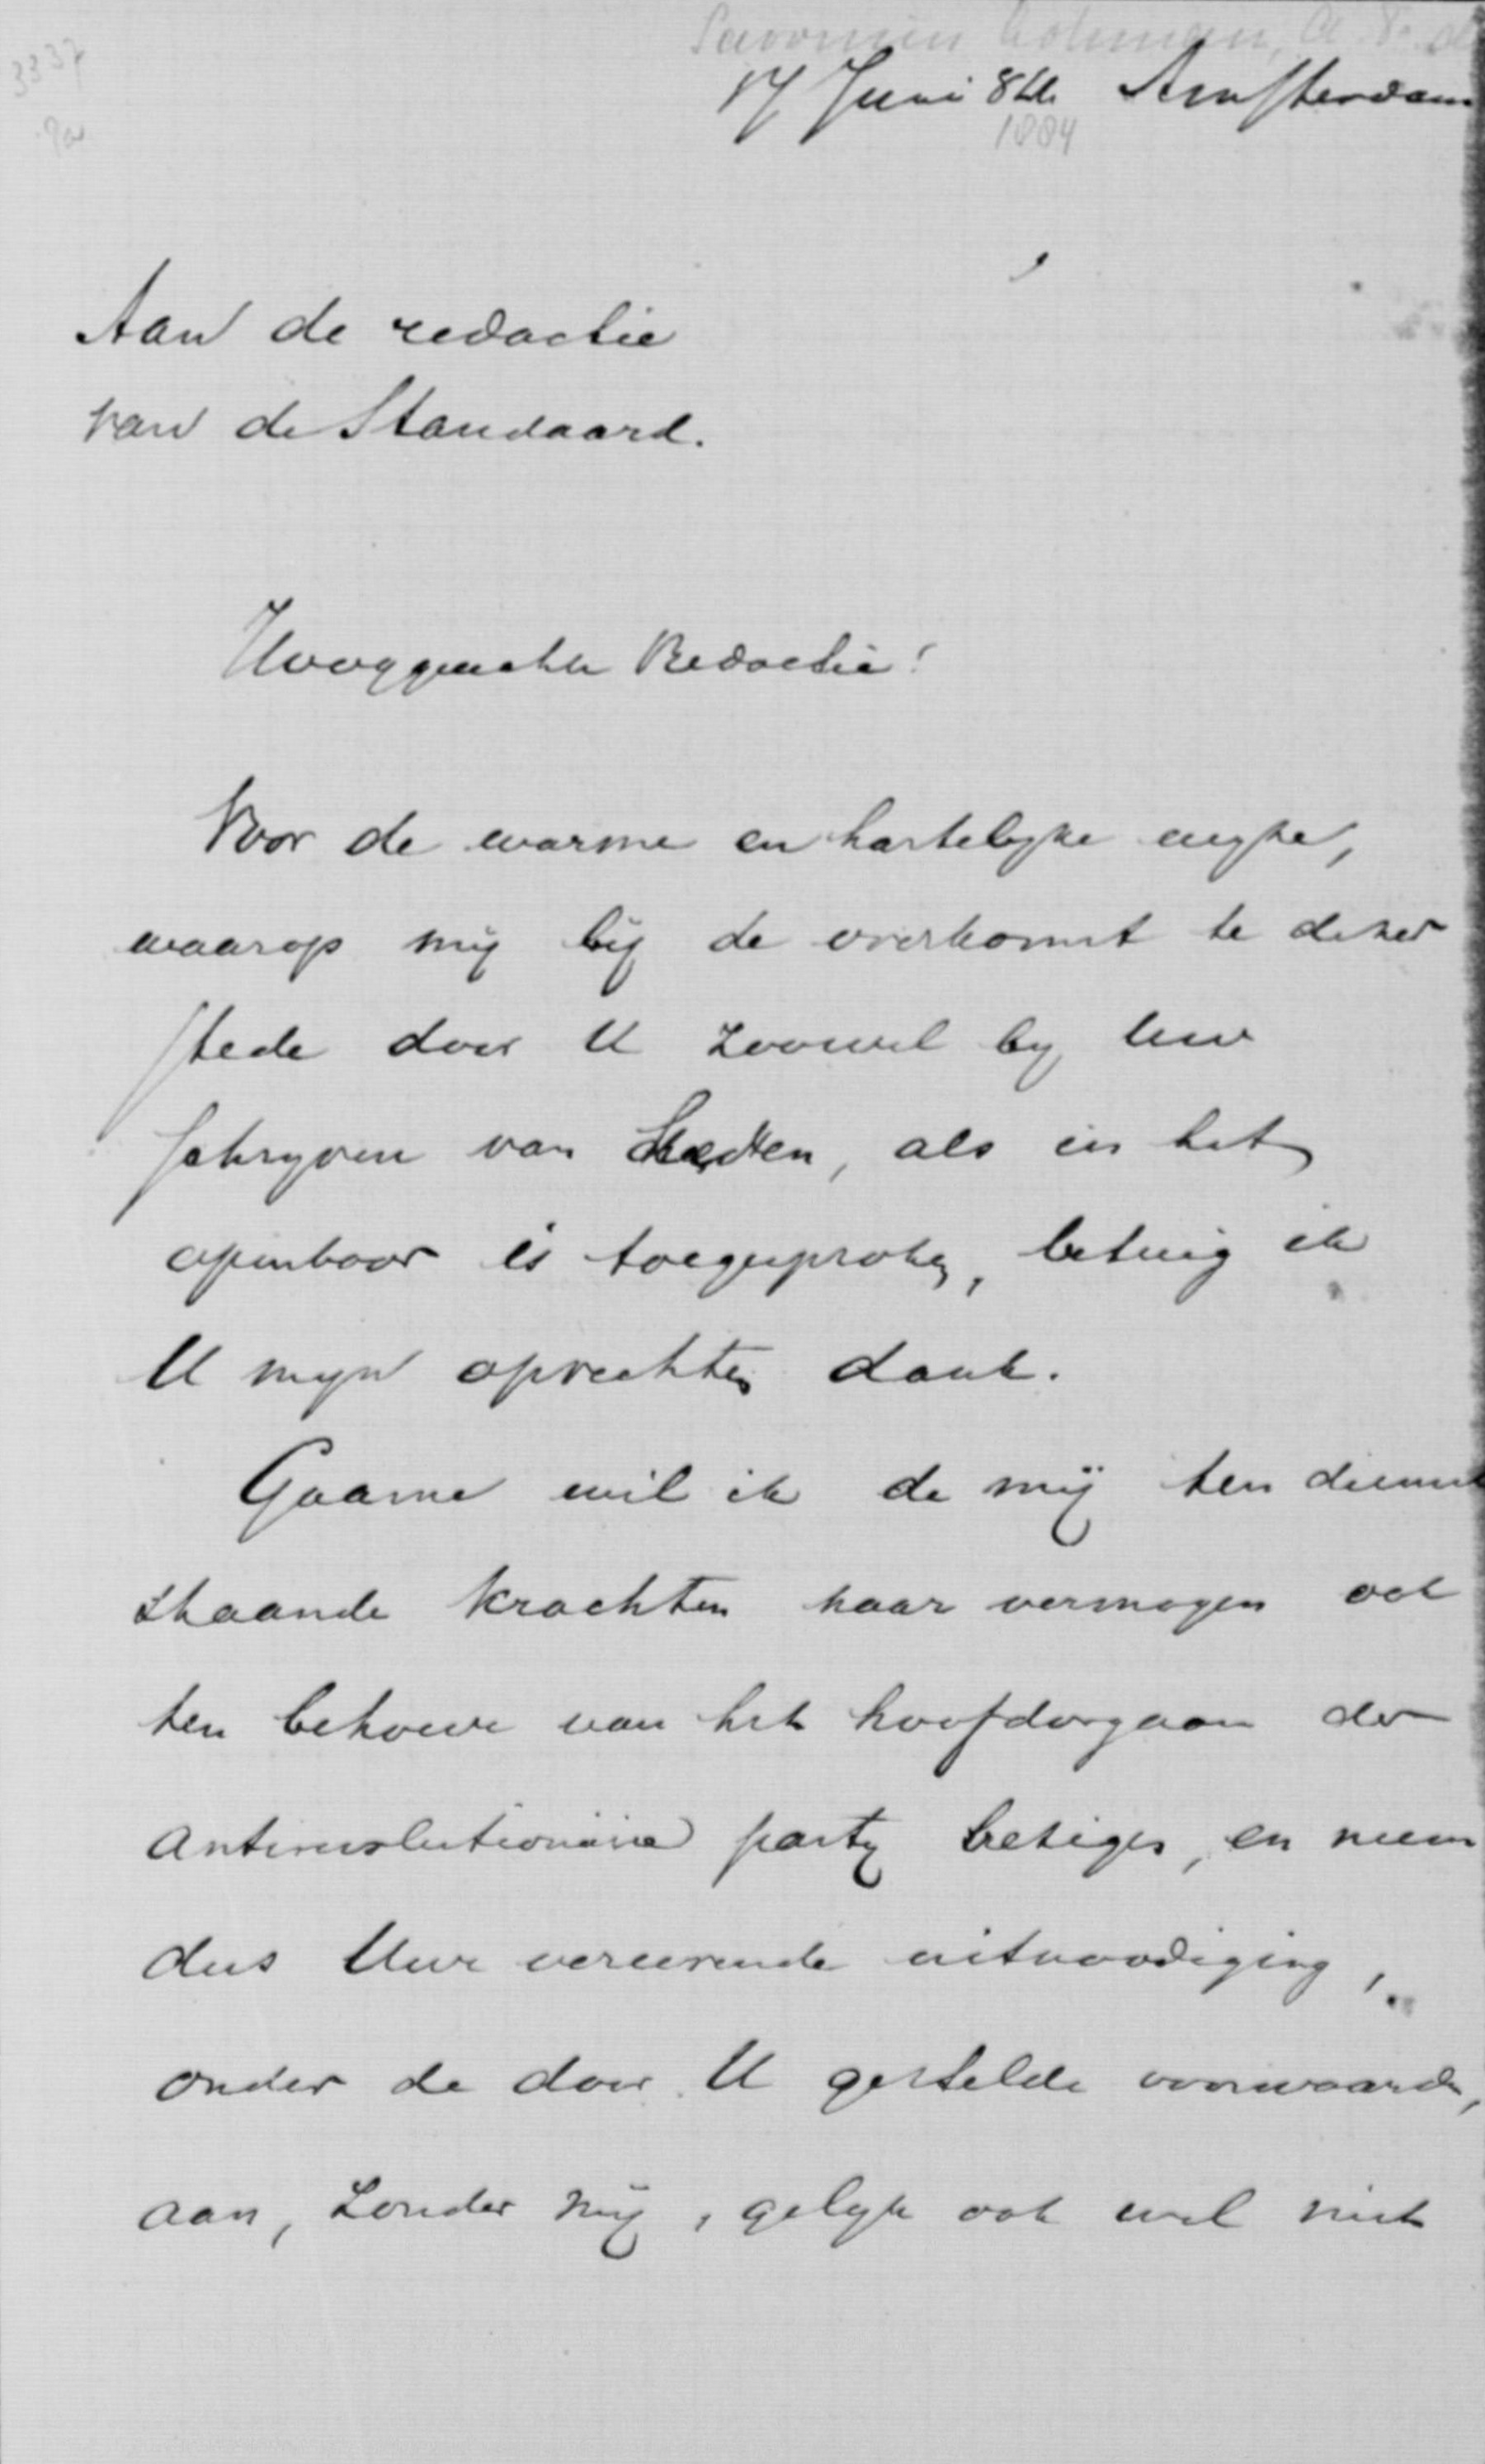 3337
Savornin Lohman, A. F. de
17 Juni 84 Amsterdam
1884
Aan de redactie
van de Standaard.
Hooggeachte Redactie!
Voor de warme en hartelyke wyze,
waarop mij bij de overkomst te dezer
stede door U zoowel by Uw
schryven van heden, als in het
openbaar is toegesproken, betuig ik
U myn oprechten dank.
Gaarne wil ik de mij ten dienst
staande krachten naar vermogen ook
ten behoeve van het hoofdorgaan der
Antirevolutionaire party bezigen, en neem
dus Uwe vereerende uitnoodiging,
onder de door U gestelde voorwaarde,
aan, zonder mij, gelyk ook wel niet